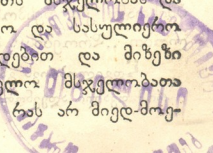 ო და სასულიერო
დებით და მიზეზი
ელო მსჯელობათა
რას არ მიედ-მოე-